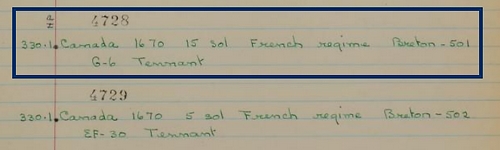 4728
330.1. Canada 1670 15 sol French regime Breton-501
G-6 Tennant
4729
330.1. Canada 1670 5 sol French regime Breton-502
EF-30 Tennant